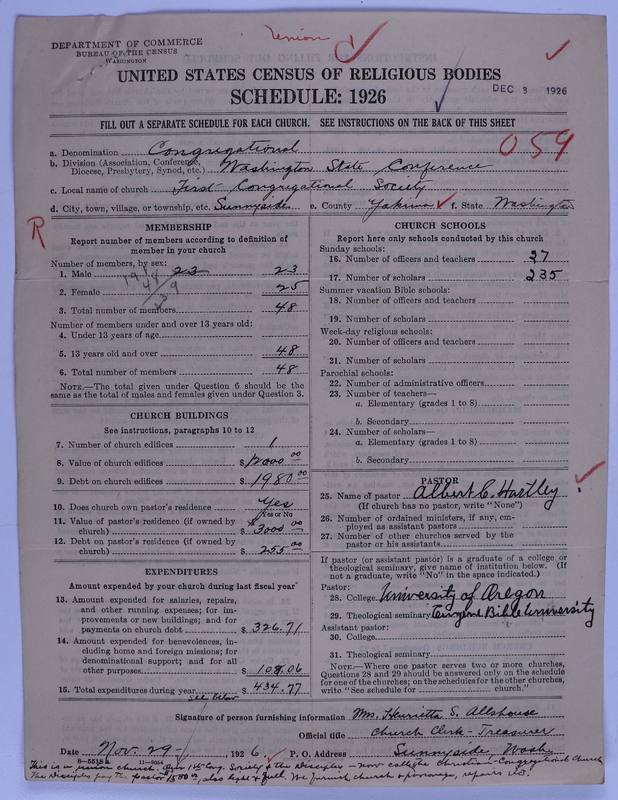 Union
DEPARTMENT OF COMMERCE
BUREAU OF THE CENSUS
WASHINGTON
UNITED STATES CENSUS OF RELIGIOUS BODIES
SCHEDULE: 1926
DEC 3 1926
FILL OUT A SEPARATE SCHEDULE FOR EACH CHURCH. SEE INSTRUCTIONS ON THE BACK OF THIS SHEET
059
a. Denomination Congregational
b. Division (Association, Conference, Diocese, Presbytery, Synod, etc.) Washington State Conference
c. Local name of church First Congregational Society
d. City, town, village, or township, etc. Sunnyside e. County Yakima f. State Washington
R
MEMBERSHIP
Report number of members according to definition of
member in your church
Number of members, by sex:
1. Male 23 23
2. Female 25
3. Total number of members 48
Number of members under and over 13 years old:
4. Under 13 years of age
5. 13 years old and over 48
6. Total number of members 48
NOTE.—The total given under Question 6 should be
same as the total of males and females given under Question 3.
CHURCH BUILDINGS
See instructions, paragraphs 10 to 12
7. Number of church edifices 1
8. Value of church edifices $12000 00
9. Debt on church edifices $1980 00
10. Does church own pastor's residence Yes
Yes or No
11. Value of pastor's residence (if owned by
church) $3000 00
12. Debt on pastor's residence (if owned by
church) $255 00
EXPENDITURES
Amount expended by your church during last fiscal year
13. Amount expended for salaries, repairs,
and other running expenses; for im-
provements or new buildings; and for
payments on church debt $326.71
14. Amount expended for benevolences, in-
cluding home and foreign missions; for
denominational support; and for all
other purposes 108.06
15. Total expenditures during year $434.77
See below
CHURCH SCHOOLS
Report here only schools conducted by this church
Sunday schools:
16. Number of officers and teachers 27
17. Number of scholars 235
Summer vacation Bible schools:
18. Number of officers and teachers
19. Number of scholars
Week-day religious schools:
20. Number of officers and teachers
21. Number of scholars
Parochial schools:
22. Number of administrative officers
23. Number of teachers—
a. Elementary (grades 1 to 8)
b. Secondary
24. Number of scholars—
a. Elementary (grades 1 to 8)
b. Secondary
PASTOR
25. Name of pastor Albert C. Hartley
(If church has no pastor, write "None")
26. Number of ordained ministers, if any, em-
ployed as assistant pastors
27. Number of other churches served by the
pastor or his assistants
If pastor (or assistant pastor) is a graduate of a college or
theological seminary, give name of institution below. (If
not a graduate, write "No" in the space indicated.)
Pastor:
28. College University of Oregon
29. Theological seminary Eugene Bible University
Assistant pastor:
30. College
31. Theological seminary
NOTE.—Where one pastor serves two or more churches,
Questions 28 and 29 should be answered only on the schedule
for one of the churches; on the schedules for the other churches,
write "See schedule for church."
Signature of person furnishing information Mrs. Henrietta S. Allshouse
Official title Church Clerk - Treasurer
Date Nov. 29 - 1926. P. O. Address Sunnyside Wash.
8—5513a 11—9054
This is a union church. Our 1st Cong. Society & the Disciples - now called the Christian-Congregational Church
The Disciples pay the pastor $1500 00, also light & fuel. We furnish church & parsonage, repairs